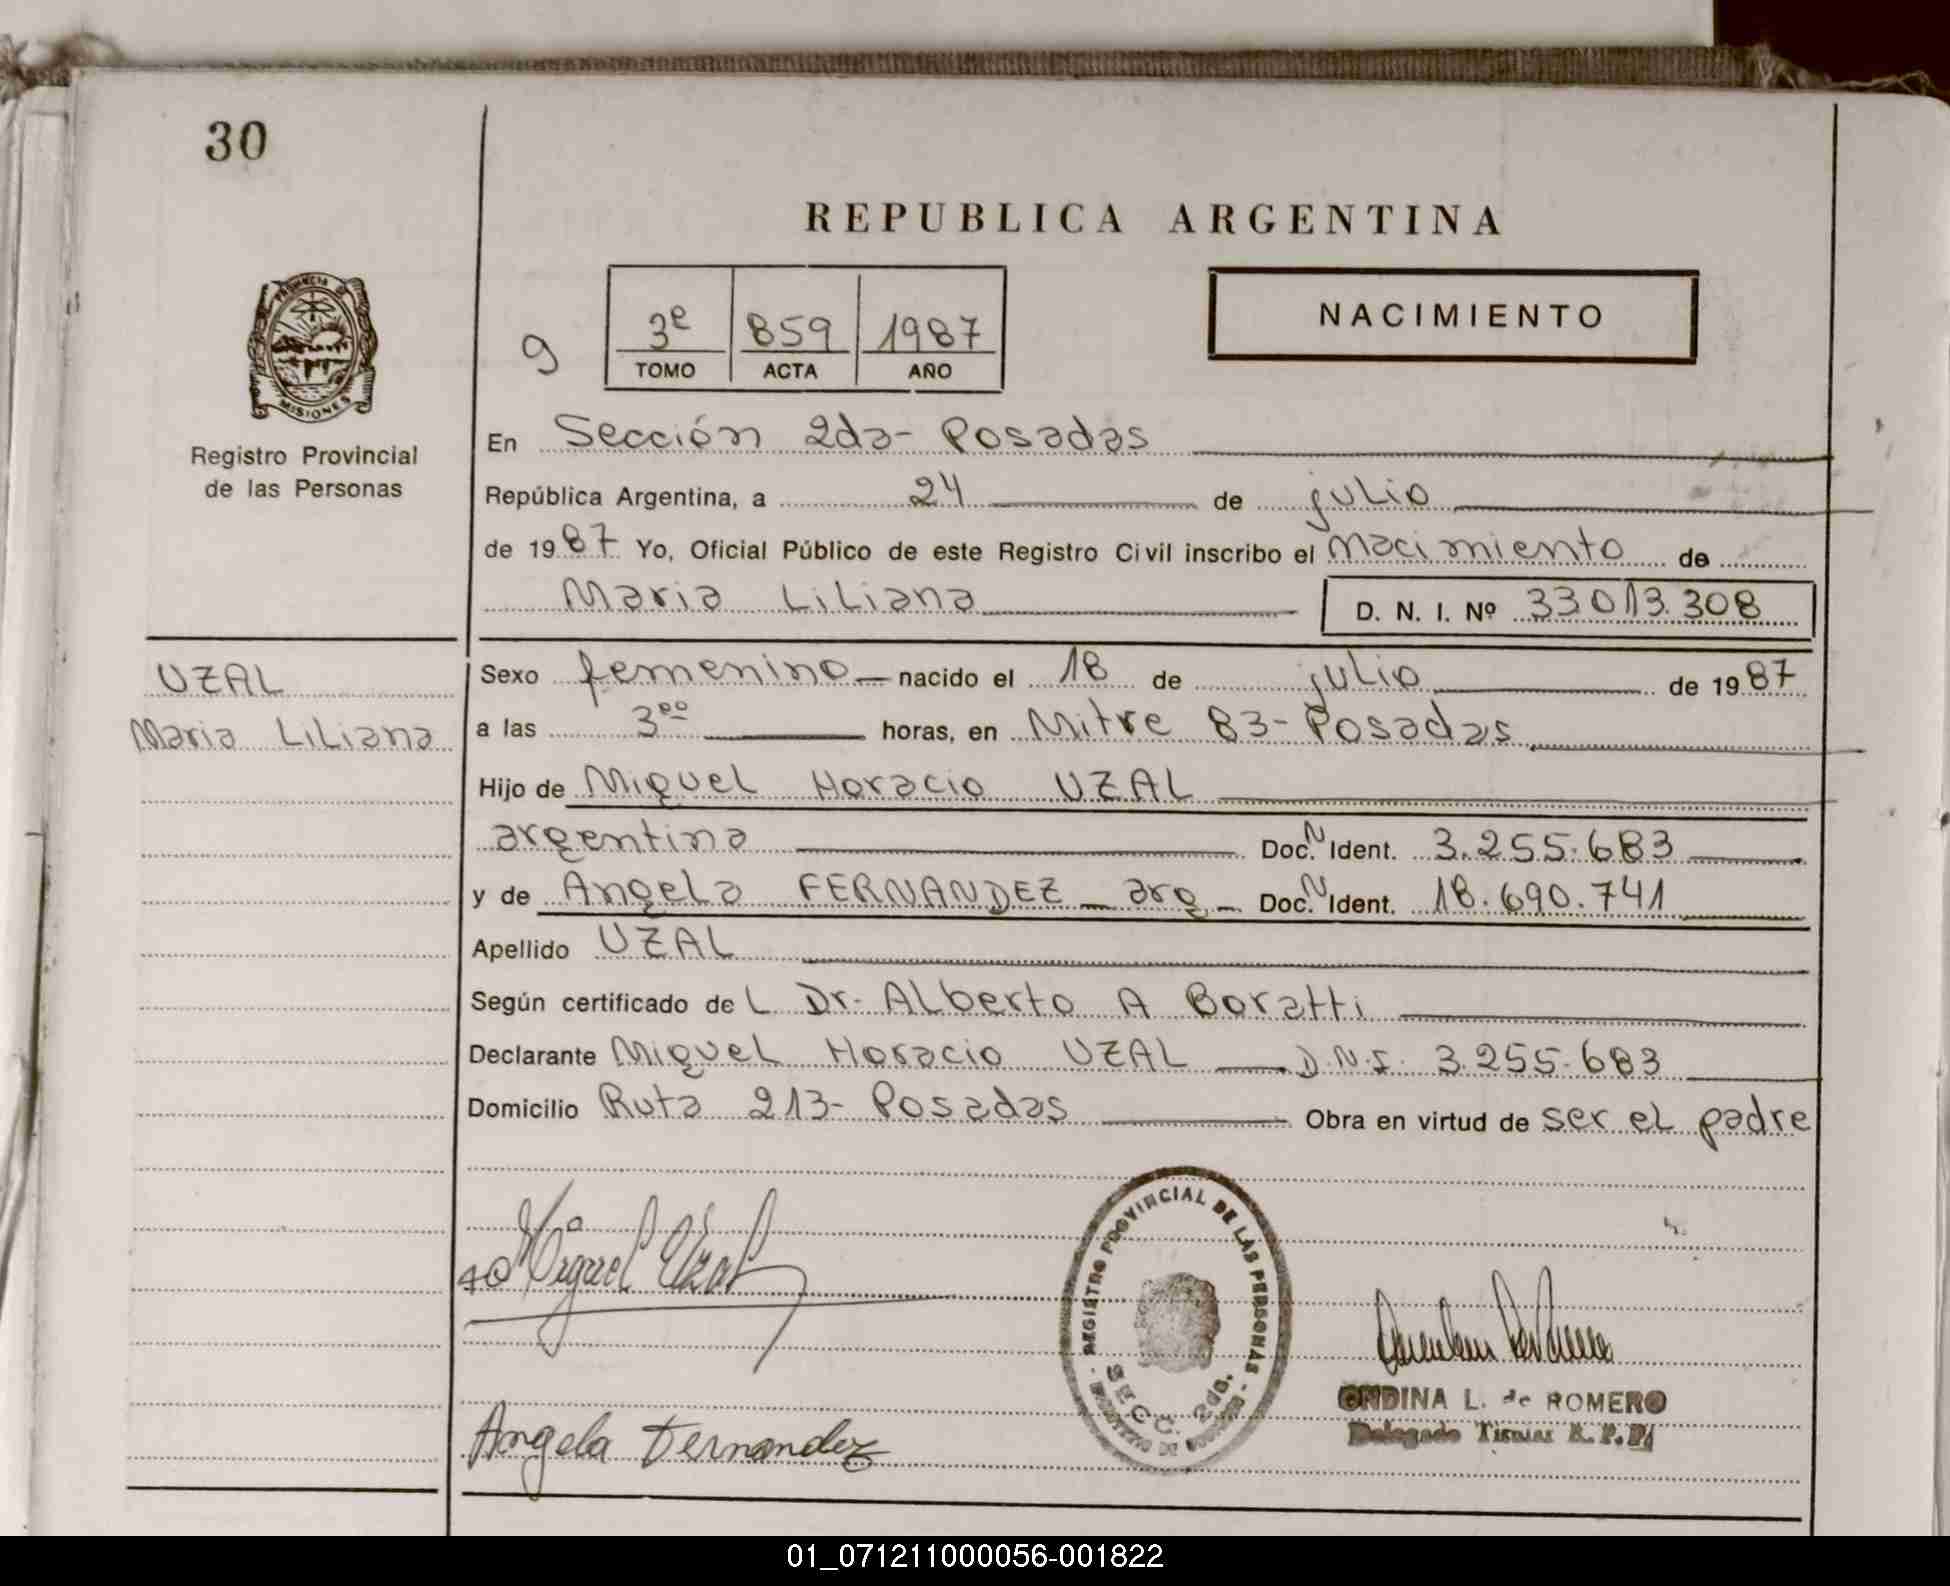 30
REPUBLICA ARGENTINA
PROVINCIA DE
MISIONES
Registro Provincial
de las Personas
NACIMIENTO
9
3e 859 1987
TOMO ACTA AÑO
En Sección 2da- Posadas
República Argentina, a 24 de julio
de 1987 Yo, Oficial Público de este Registro Civil inscribo el nacimiento de
Maria Liliana D. N. I. Nº 33013.308
UZAL
Maria Liliana
Sexo femenino nacido el 18 de julio de 1987
a las 3 horas, en Mitre 83- Posadas
Hijo de Miguel Horacio UZAL
argentina Doc. N Ident. 3.255.683
y de Angela FERNANDEZ arg Doc. N Ident. 18.690.741
Apellido UZAL
Según certificado del Dr. Alberto A Boratti
Declarante Miguel Horacio UZAL D.N.I. 3.255.683
Domicilio Ruta 213- Posadas Obra en virtud de ser el padre
Miguel Uzal
REGISTRO PROVINCIAL DE LAS PERSONAS
SECC. 2da.
ONDINA L. de ROMERO
Delegado Titular R. P. P.
Angela Fernandez
01_071211000056-001822